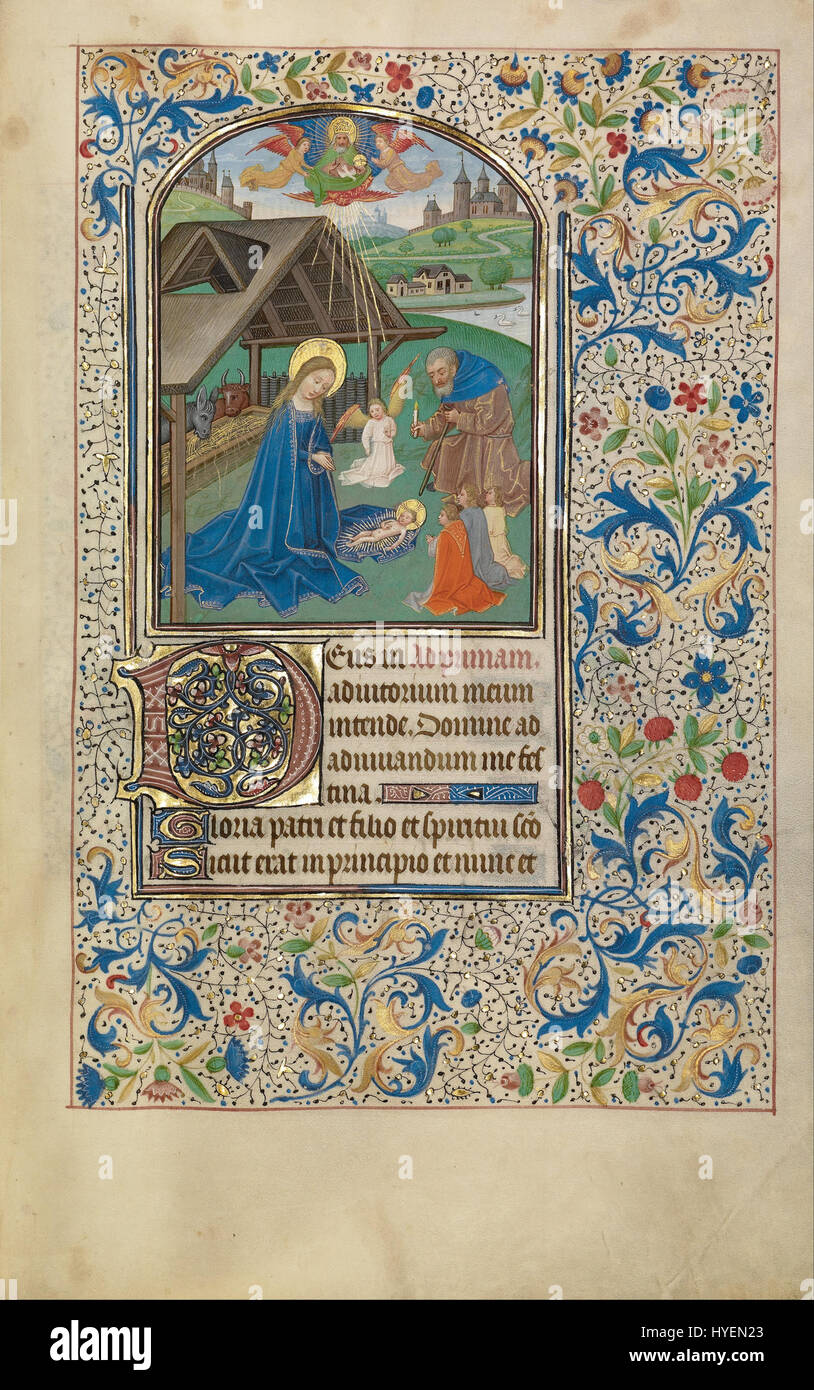 Deus in Ad primam.
adiutorium meum
intende. Domine ad
adiuuandum me fes
tina.
Gloria patri et filio et spiritui sco
Sicut erat in principio et nunc et
alamy
Image ID: HYEN23
www.alamy.com